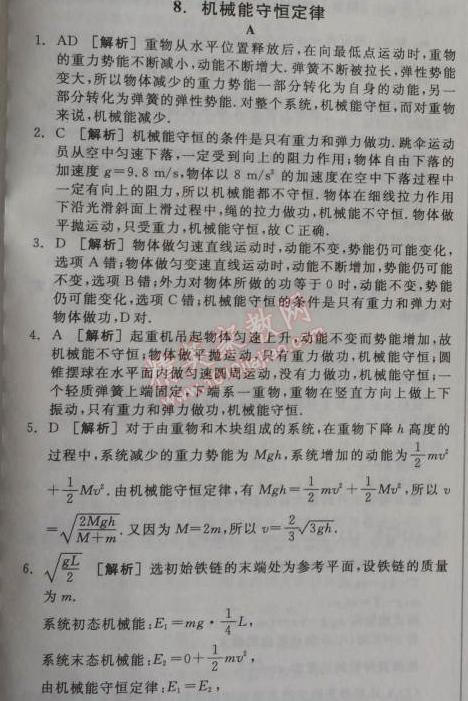 8. 机械能守恒定律
A
1. AD [解析] 重物从水平位置释放后,在向最低点运动时,重物
的重力势能不断减小,动能不断增大.弹簧不断被拉长,弹性势能
变大,所以物体减少的重力势能一部分转化为自身的动能,另一
部分转化为弹簧的弹性势能.对整个系统,机械能守恒,而对重物
来说,机械能减少.
2. C [解析] 机械能守恒的条件是只有重力和弹力做功.跳伞运动
员从空中匀速下落,一定受到向上的阻力作用;物体自由下落的
加速度 g=9.8 m/s,物体以 8 m/s² 的加速度在空中下落过程中
一定有向上的阻力,所以机械能都不守恒.物体在细线拉力作用
下沿光滑斜面上滑过程中,绳的拉力做功,机械能不守恒.物体做
平抛运动,只受重力,机械能守恒,故 C 正确.
3. D [解析] 物体做匀速直线运动时,动能不变,势能仍可能变化,
选项 A 错;物体做匀变速直线运动时,动能不断增加,势能仍可能
不变,选项 B 错;外力对物体所做的功等于 0 时,动能不变,势能
仍可能变化,选项 C 错;机械能守恒的条件是只有重力和弹力对
物体做功,D 对.
4. A [解析] 起重机吊起物体匀速上升,动能不变而势能增加,故
机械能不守恒;物体做平抛运动,只有重力做功,机械能守恒;圆
锥摆球在水平面内做匀速圆周运动,没有力做功,机械能守恒;一
个轻质弹簧上端固定,下端系一重物,重物在竖直方向上做上下
振动,只有重力和弹力做功,机械能守恒.
5. D [解析] 对于由重物和木块组成的系统,在重物下降 h 高度的
过程中,系统减少的重力势能为 Mgh,系统增加的动能为 1/2 mv²
+1/2 Mv².由机械能守恒定律,有 Mgh=1/2 mv²+1/2 Mv²,所以 v
=√(2Mgh/(M+m)).又因为 M=2m,所以 v=2/3 √3gh.
6. √(gL/2) [解析] 选初始铁链的末端处为参考平面,设铁链的质量
为 m.
系统初态机械能:E₁=mg·1/4 L,
系统末态机械能:E₂=0+1/2 mv²,
由机械能守恒定律:E₁=E₂,